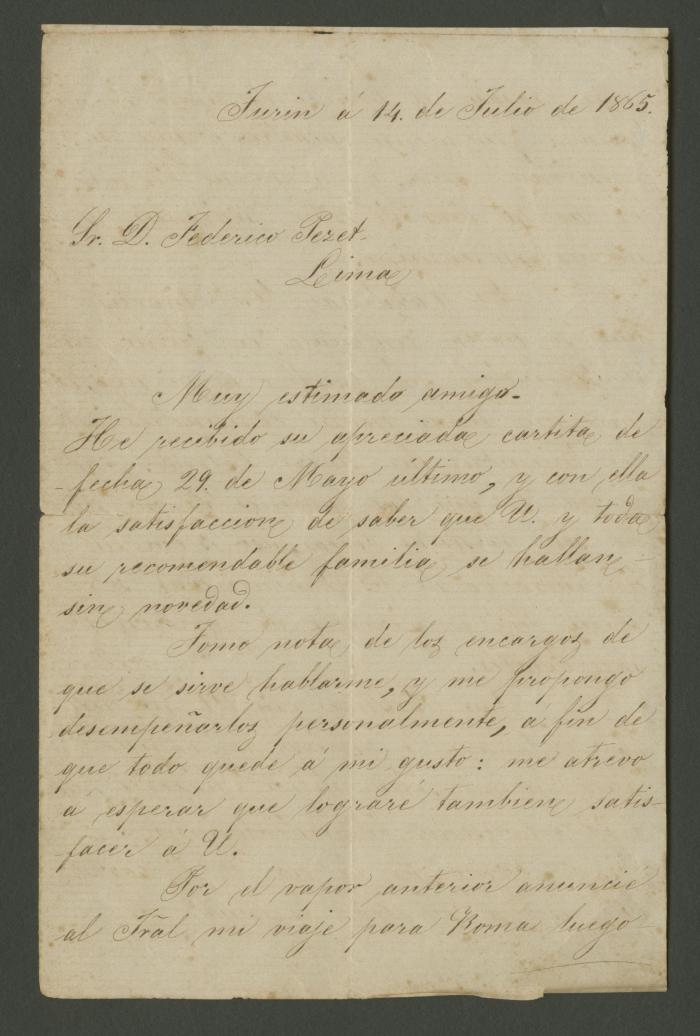 Turin á 14. de Julio de 1865.
Sr. D. Federico Pezet.
Lima
Muy estimado amigo.
He recibido su apreciada cartita de
fecha 29. de Mayo último, y con ella
la satisfaccion de saber que U. y toda
su recomendable familia se hallan
sin novedad.
Tomo nota de los encargos de
que se sirve hablarme, y me propongo
desempeñarlos personalmente, á fin de
que todo quede á mi gusto: me atrevo
á esperar que lograré tambien satis-
facer á U.
Por el vapor anterior anuncié
al Gral mi viaje para Roma luego